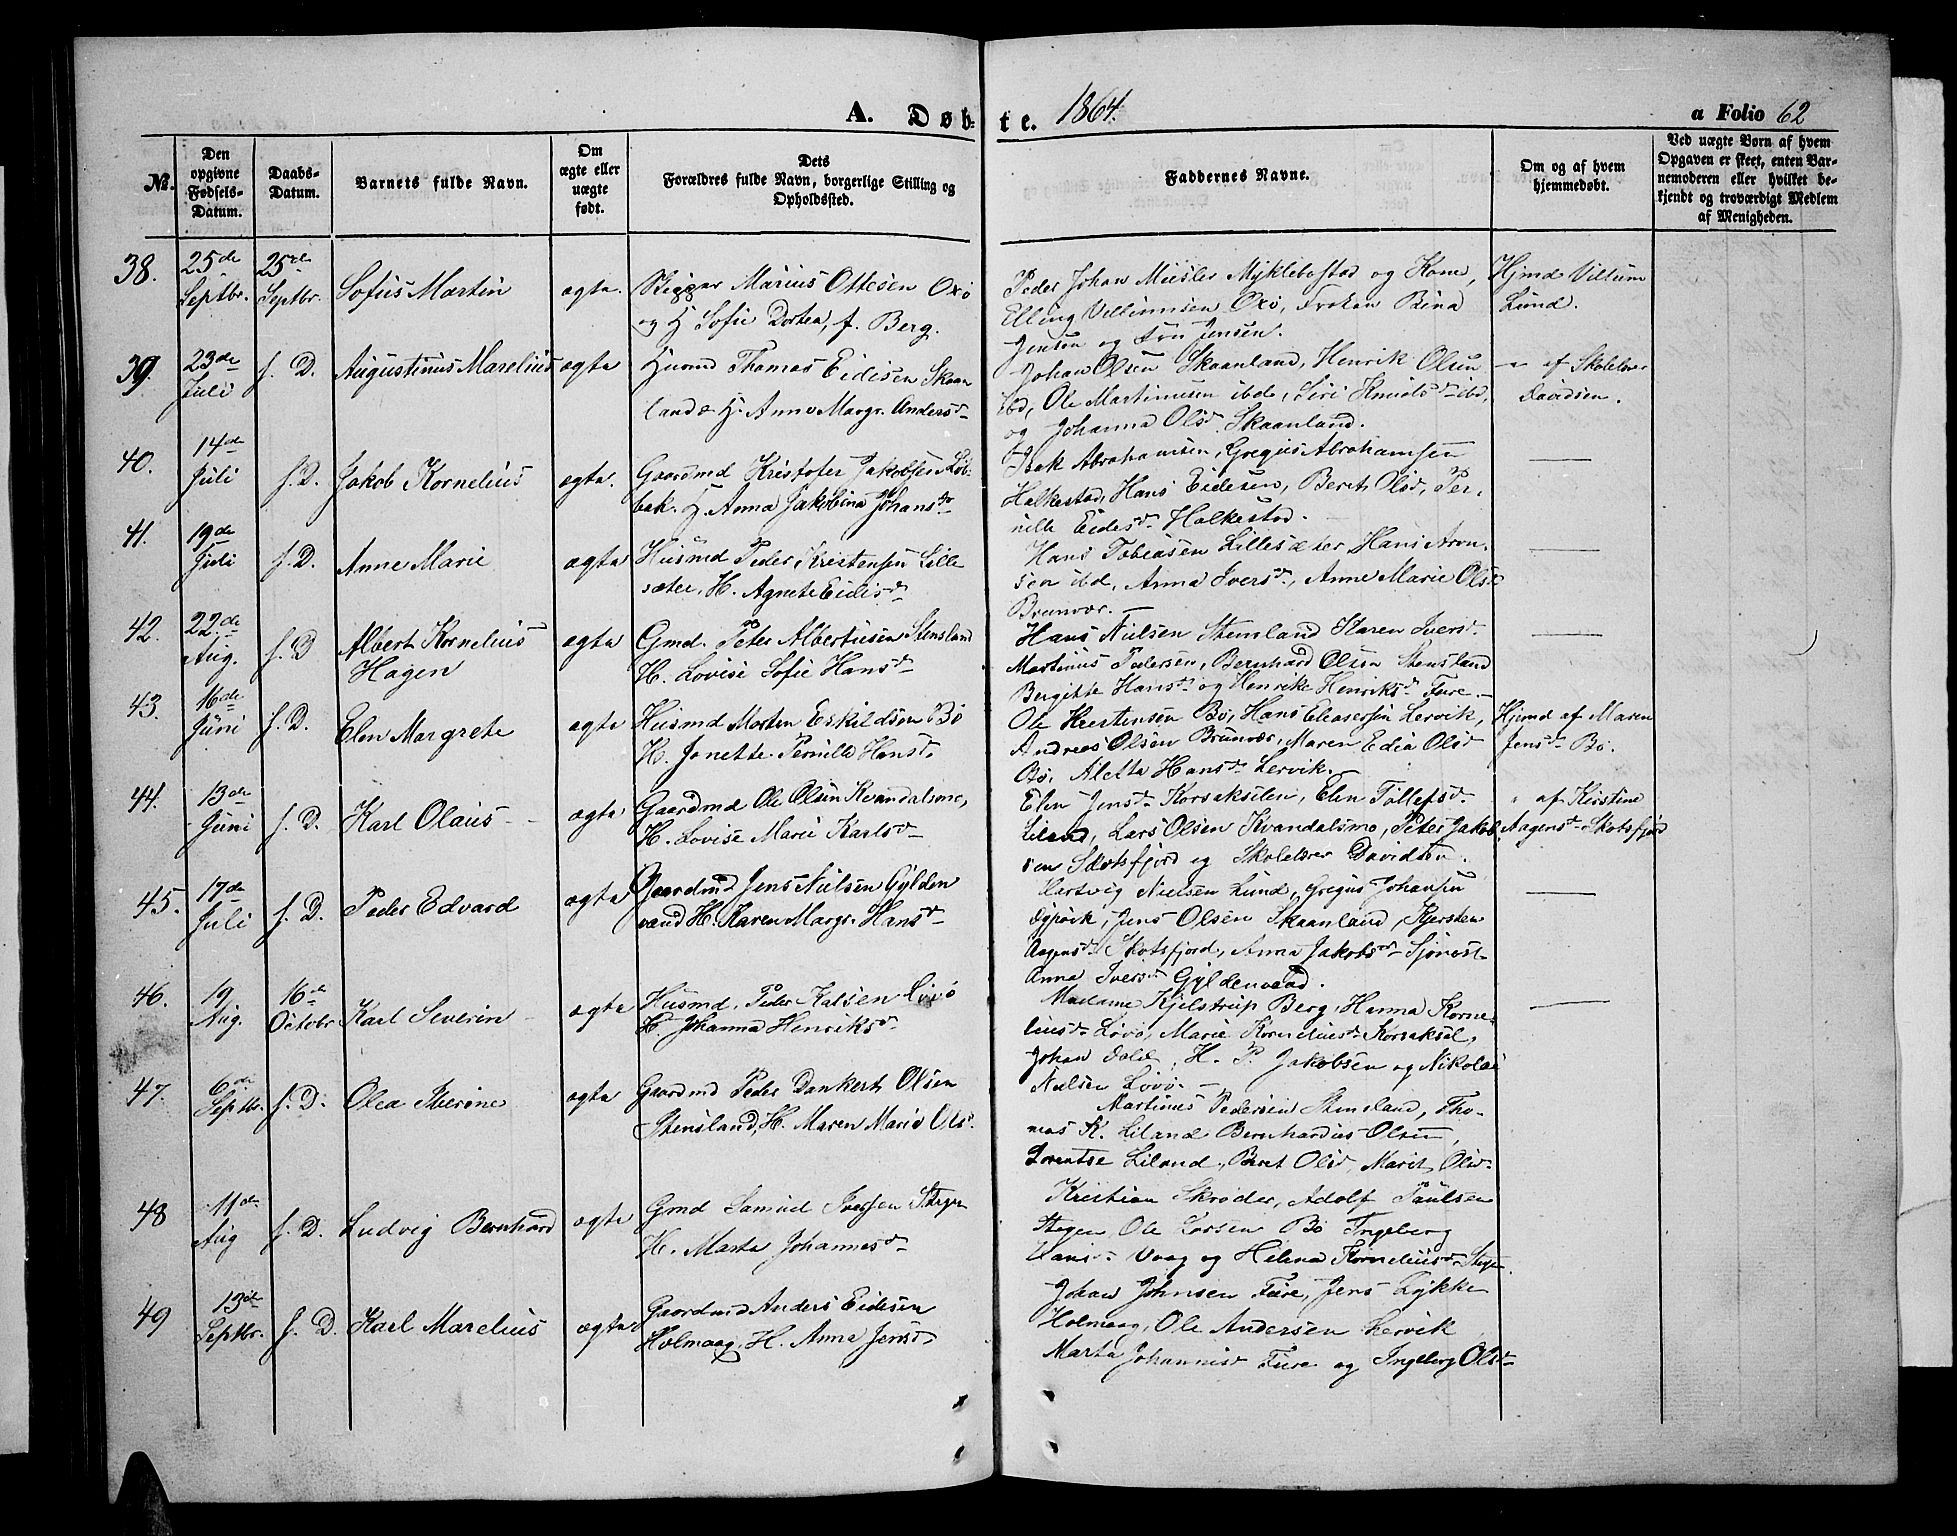 A. Døb- te. 1864. a Folio 62
No. Den opgivne Fødsels-Datum. Daabs-Datum. Barnets fulde Navn. Om ægte eller uægte født. Dets Forældres fulde Navn, borgerlige Stilling og Opholdssted. Faddernes Navne. Om og af hvem hjemmedøbt. Ved uægte Børn af hvem Opgaven er skeet, enten Barnemoderen eller hvilket bekjendt og troværdigt Medlem af Menigheden.
38. 25de Septbr. 25de Septbr. Sofus Martin ægte. Marius Ottesen Oxø
og H Sofie Dortea, f. Berg.
Peder Johan Myklebostad og Kone, Hjmd Villum
Elling Villumsen Oxø, Frøken Bina Lund.
Jensen og Fru Jensen.
39. 23de Juli s. D. Augustinus Marelius ægte Husmd Thomas Eidisen Skaan
land & H. Anne Margr. Andersd.
Johan Olsen Skaanland, Henrik Olsen — af Skolelærer
ibd, Ole Martinusen ibd, Siri Knudsd. ibd, Davidsen.
og Johanna Olsd. Skaanland.
40. 14de Juli s. D. Jakob Kornelius ægte. Gaardmd Kristofer Jakobsen Løb-
bak. H. Anna Jakobina Johansd.
Isak Abrahamsen, Gregus Abrahamsen —
Halkestad, Hans Eidesen, Beret Olsd, Per-
nille Eidesd. Halkestad.
41. 19de Juli s. D. Anne Marie ægte Husmd Peder Kristensen Lille
sæter, H. Agnete Eidisd.
Hans Tobiasen Lillesæter Hans Aron- —
sen ibd, Anna Iversd., Anne Marie Olsd
Brunvær. —
42. 22de Aug. s. D Albert Kornelius Hagen ægte Gmd. Peter Albertusen Stensland
H. Lovise Sofie Hansd.
Hans Nielsen Stensland Karen Iversd. —
Martinus Pedersen, Bernhard Olsen Stensland
Bergitte Hansd. og Henrike Henriksd. Fure. —
43. 16de Juni s. D. Elen Margrete ægte Husmd Morten Eskildsen Bø
H. Jonette Pernille Hansd.
Ole Kristensen Bø, Hans Eleasersen Lervik, Hjmd af Maren
Andreas Olsen Brunvær, Maren Edia Olsd Jensd. Bø.
Bø, Aletta Hansd. Lervik. —
44. 13de Juni s. D. Karl Olaus ægte Gaardmd Ole Olsen Kvandalsmo,
H. Lovise Marie Karlsd.
Elen Jensd. Korsakselen, Elen Tollefsd. " af Kirstine
Liland, Lars Olsen Kvandalsmo, Peter Jakob- Aagensd. Skotsfjord
sen Skotsfjord og Skolelærer Davidsen.
45. 17de Juli s. D. Peder Edvard ægte Gaardmd Jens Nielsen Gylden
vand H. Karen Margr. Hansd.
Hartvig Nielsen Lund, Gregus Johansen —
Dypvik, Jens Olsen Skaanland, Kjersten
Aagensd. Skotsfjord, Anna Jakobsd.
Anna Iversd. Gyldenvand.
46. 19 Aug. 16de Octobr Karl Severin ægte Husmd. Peder Løvø
H. Johanna Henriksd.
Madame Kjelstrup Berg, Hanna Korne- —
liusd. Løvø, Marie Korneliusd. Korsaksel,
Johan H. P. Jakobsen og Nikolai
Nielsen Løvø. —
47. 6de Septbr. s. D. Olea ægte Gaardmd Peder Dankert Olsen
Stensland, H. Maren Marie Olsd.
Martinus Pedersen Stensland, Tho-
mas K. Liland Bernhardus Olsen,
Lorentse Liland, Beret Olsd, Marit Olsd.
48 11de Aug s. D. Ludvig Bernhard ægte Gmd Samuel Iversen Stegen
H. Marta Johannesd.
Kristian Skrøder, Adolf Paulsen
Stegen, Ole Larsen Bø Ingeborg
Hansd. Vaag og Helena Korneliusd. Stegen.
49 13de Septbr. s. D. Karl Marelius ægte Gaardmd Anders Eidesen
Holmaag, H. Anna Jensd.
Johan Johnsen Fure, Jens Lykke
Holmaag, Ole Andersen Lervik
Marta Johannisd Fure og Ingeborg Olsd.